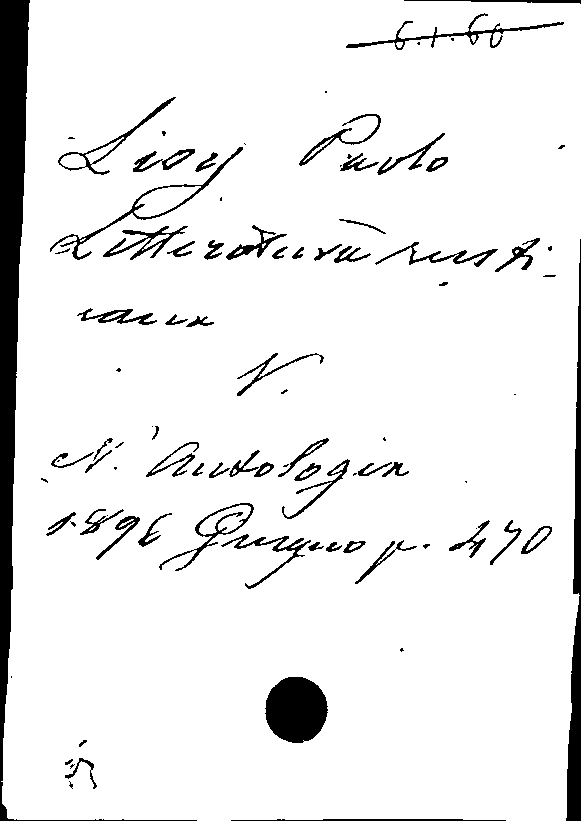 6.1.60
Lioy Paolo
Letteratura rusti-
cana
V.
N. Antologia
1896 Giugno p. 470